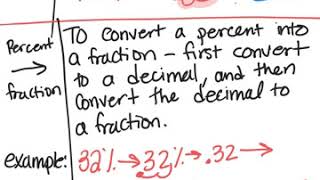 Percent → fraction
To convert a percent into
a fraction – first convert
to a decimal, and then
convert the decimal to
a fraction.
example: 32% → 32% → .32 →